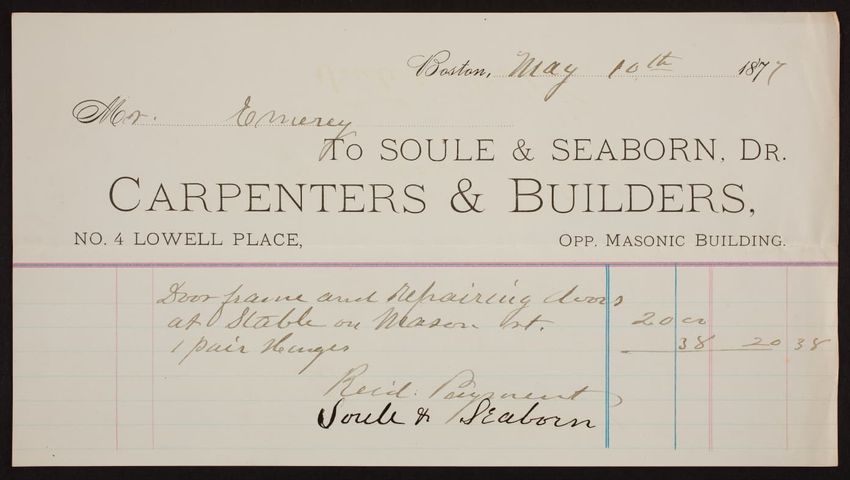 Boston, May 10th 1877
Mr. Emerey
To SOULE & SEABORN, DR.
CARPENTERS & BUILDERS,
NO. 4 LOWELL PLACE, OPP. MASONIC BUILDING.
Door frame and Repairing doors
at Stable on Mason st. 20 00
1 pair Hinges 38 20 38
Recd. Payment
Soule & Seaborn